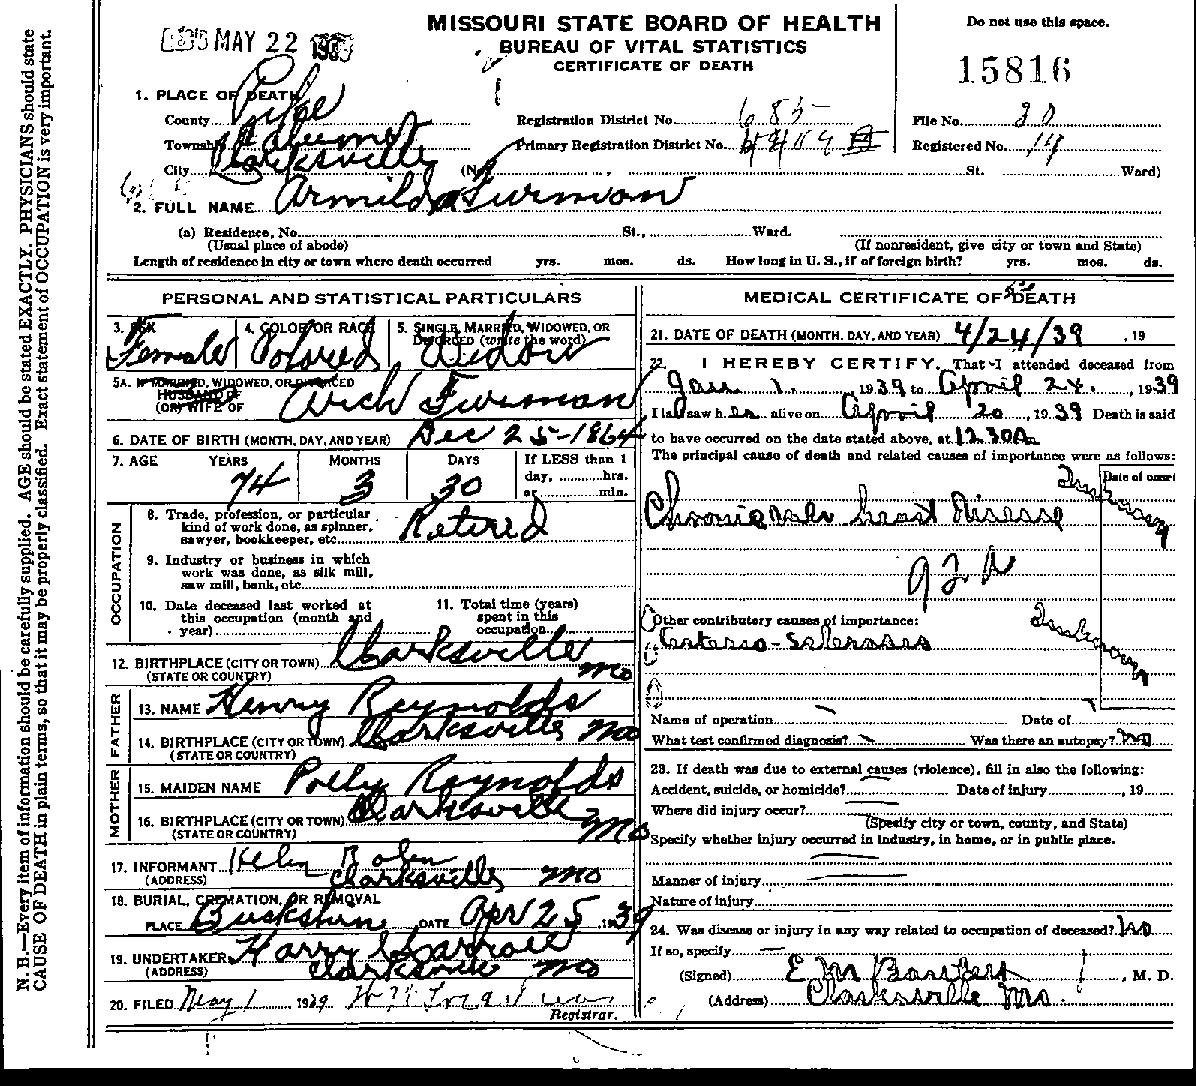 MISSOURI STATE BOARD OF HEALTH
BUREAU OF VITAL STATISTICS
CERTIFICATE OF DEATH
Do not use this space.
MAY 22
15816
1. PLACE OF DEATH
County Pike
Registration District No. 685
File No. 20
Township Calumet
Primary Registration District No.
Registered No. 14
City Clarksville
(No.
St.
Ward)
2. FULL NAME Armilda Furman
(a) Residence, No. St., Ward.
(Usual place of abode)
(If nonresident, give city or town and State)
Length of residence in city or town where death occurred yrs. mos. ds. How long in U. S., if of foreign birth? yrs. mos. ds.
PERSONAL AND STATISTICAL PARTICULARS
3. SEX Female
4. COLOR OR RACE Colored
5. SINGLE, MARRIED, WIDOWED, OR DIVORCED (write the word) Widow
5A. IF MARRIED, WIDOWED, OR DIVORCED
HUSBAND OF
(OR) WIFE OF Arch Furman
6. DATE OF BIRTH (MONTH, DAY, AND YEAR) Dec 25-1864
7. AGE YEARS MONTHS DAYS If LESS than 1
74 3 30 day, hrs.
or min.
OCCUPATION
8. Trade, profession, or particular
kind of work done, as spinner,
sawyer, bookkeeper, etc. Retired
9. Industry or business in which
work was done, as silk mill,
saw mill, bank, etc.
10. Date deceased last worked at
this occupation (month and
year)
11. Total time (years)
spent in this
occupation
12. BIRTHPLACE (CITY OR TOWN) Clarksville
(STATE OR COUNTRY) Mo
FATHER
13. NAME Henry Reynolds
14. BIRTHPLACE (CITY OR TOWN) Clarksville Mo
(STATE OR COUNTRY)
MOTHER
15. MAIDEN NAME Polly Reynolds
16. BIRTHPLACE (CITY OR TOWN) Clarksville
(STATE OR COUNTRY) Mo
17. INFORMANT Helen
(ADDRESS) Clarksville Mo
18. BURIAL, CREMATION, OR REMOVAL
PLACE DATE Apr 25, 1939
19. UNDERTAKER Harry
(ADDRESS) Clarksville Mo
20. FILED May 1 1939
Registrar.
MEDICAL CERTIFICATE OF DEATH
21. DATE OF DEATH (MONTH, DAY, AND YEAR) 4/24/39, 19
22. I HEREBY CERTIFY, That I attended deceased from
Jan 1, 1939 to April 24, 1939
I last saw her alive on April 20, 1939 Death is said
to have occurred on the date stated above, at 12.30 A m
The principal cause of death and related causes of importance were as follows:
Date of onset
Chronic heart Disease
92A
Other contributory causes of importance:
Arterio-Sclerosis
Name of operation Date of
What test confirmed diagnosis? Was there an autopsy? no
23. If death was due to external causes (violence), fill in also the following:
Accident, suicide, or homicide? Date of injury , 19
Where did injury occur?
(Specify city or town, county, and State)
Specify whether injury occurred in industry, in home, or in public place.
Manner of injury
Nature of injury
24. Was disease or injury in any way related to occupation of deceased? no
If so, specify
(Signed) E M , M. D.
(Address) Clarksville Mo.
N. B.—Every item of information should be carefully supplied. AGE should be stated EXACTLY. PHYSICIANS should state
CAUSE OF DEATH in plain terms, so that it may be properly classified. Exact statement of OCCUPATION is very important.